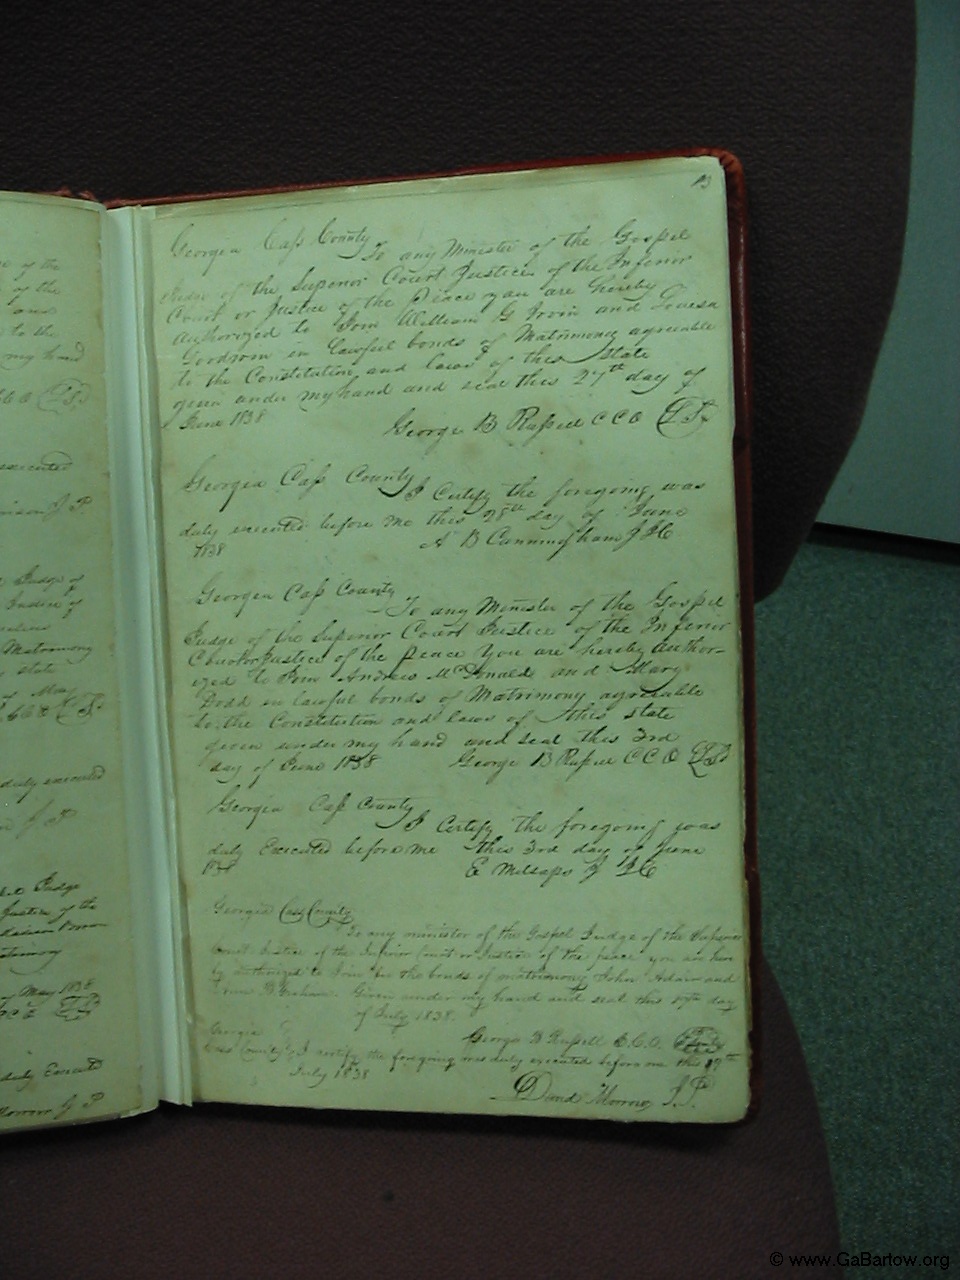 of the
of the
and
to the
my hand
executed
J P
Judge of
Justice of
Matrimony
state
of May
duly executed
J P
Judge
Justice of the
of May 1838
duly Execut
Morrow J P
13
Georgia Cass County
To any Minister of the Gospel
Judge of the Superior Court Justice of the Inferior
Court or Justice of the Peace you are hereby
authorized to Join William G Irvin and
Goodson in lawful bonds of Matrimony agreeable
to the Constitution and laws of this state
given under my hand and seal this 27th day of
June 1838
George B Russell C C O L S
Georgia Cass County
I Certify the foregoing was
duly executed before me this 28th day of June
1838 A B Cunningham J I C
Georgia Cass County
To any Minister of the Gospel
Judge of the Superior Court Justice of the Inferior
Court or Justice of the peace You are hereby author-
ized to Join Andrew McDonald and Mary
Dodd in lawful bonds of Matrimony agreeable
to the Constitution and laws of this state
given under my hand and seal this 3rd
day of June 1838 George B Russell C C O L S
Georgia Cass County
I Certify the foregoing was
duly Executed before me this 3rd day of June
1838 E Milsaps J I C
Georgia Cass County
To any minister of the Gospel Judge of the Superior
Court Justice of the Inferior Court or Justice of the peace you are here
by authorized to Join in the bonds of matrimony John Adair and
B. Graham. Given under my hand and seal this day
of July 1838.
Georgia George B Russell C.C.O.
Cass County I certify the foregoing was duly executed before me this 19th
July 1838
David Morrow J.P.
© www.GaBartow.org